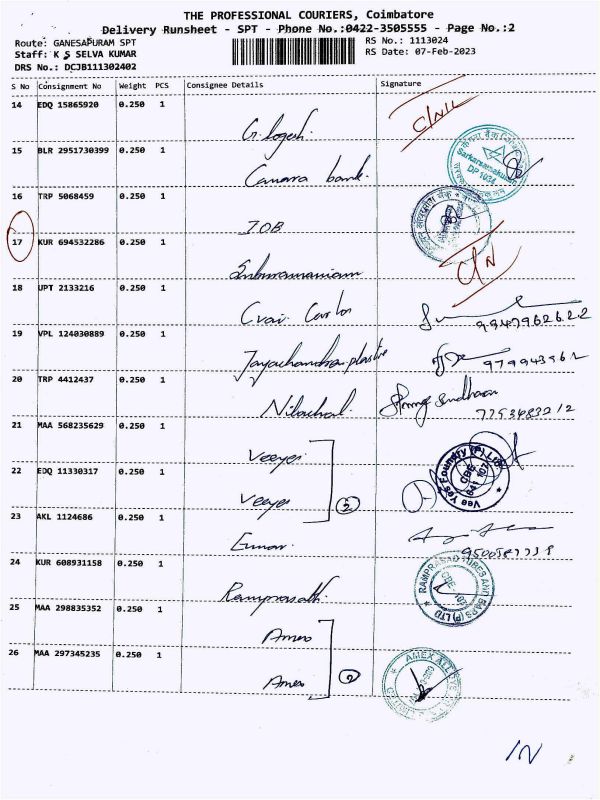 THE PROFESSIONAL COURIERS, Coimbatore
Delivery Runsheet - SPT - Phone No.:0422-3505555 - Page No.:2
Route: GANESAPURAM SPT
RS No.: 1113024
Staff: K S SELVA KUMAR
RS Date: 07-Feb-2023
DRS No.: DCJB111302402
S No Consignment No Weight PCS Consignee Details Signature
14 EDQ 15865920 0.250 1
G. logesh.
15 BLR 2951730399 0.250 1
Canara bank.
DP 1034
16 TRP 5068459 0.250 1
IOB
17 KUR 694532286 0.250 1
Subramaniam
18 UPT 2133216 0.250 1
19 VPL 124030889 0.250 1
Jayachandra plastic
20 TRP 4412437 0.250 1
21 MAA 568235629 0.250 1
Veeyes
Vee Yes Foundry (P) Ltd
CBE
641 107
22 EDQ 11330317 0.250 1
Veeyes
23 AKL 1124686 0.250 1
24 KUR 608931158 0.250 1
Ramprasath.
25 MAA 298835352 0.250 1
Amex
26 MAA 297345235 0.250 1
Amex
2